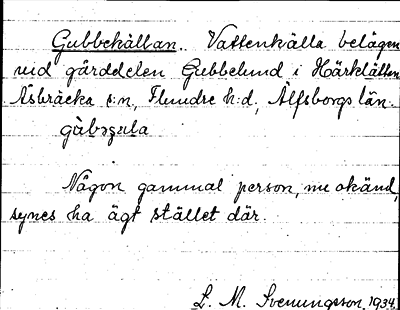 Gubbekällan. Vattenkälla belägen
vid gårddelen Gubbelund i Härklätten
Åsbräcka s:n, Flundre h:d, Älfsborgs län.
Någon gammal person, nu okänd,
synes ha ägt stället där.
L. M. Svenungsson, 1934.